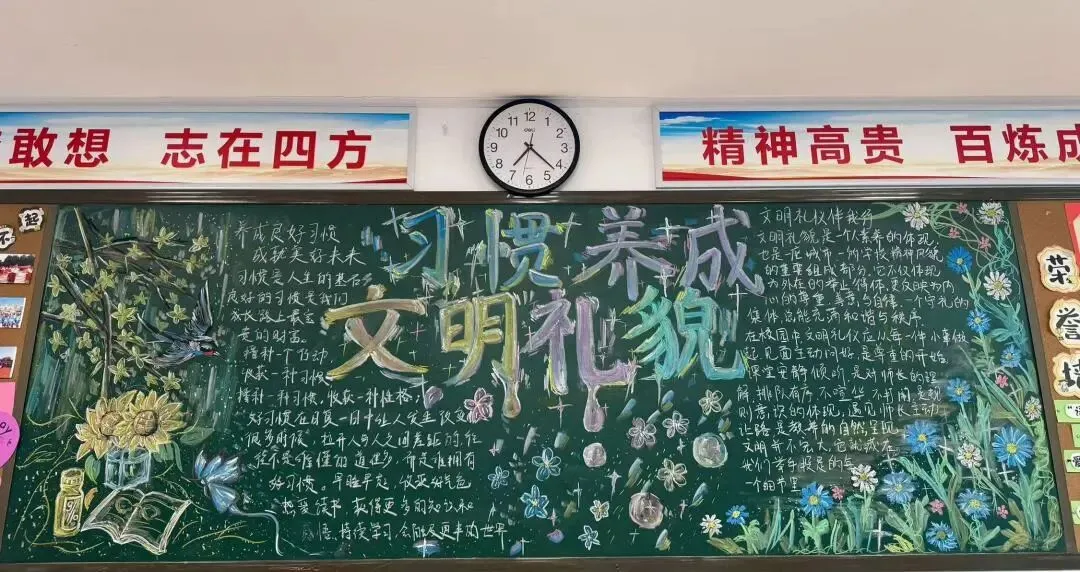 敢想 志在四方
12
1
2
3
4
5
6
7
8
9
10
11
deli
精神高贵 百炼成
不
起
养成良好习惯
成就美好未来
习惯是人生的基石
良好的习惯是我们
成长路上最宝
贵的财富。
播种一个行动
收获一种习惯
播种一种习惯,收获一种性格,
好习惯在日复一日中让人发生改变
很多时候 拉开人与人之间差距的,往
往不是 而是谁拥有
好习惯。早睡早起
热爱读书 获得更多的知识和
感悟,持续学习,会 更丰 的世界
习惯养成
文明礼貌
文明礼仪伴我行
文明礼貌,是一个人素养的体现,
也是一座城市一所学校精神风貌
的重要组成部分,它不仅体现
为外在的举止得体,更反映为内
心的尊重、善意与自律。一个守礼的
集体总能充满和谐与秩序
在校园中文明礼仪应从每一件小事做
起,见面主动问好是尊重的开始
课堂安静倾听是对师长的理
解,排队有序不喧哗不打闹是规
则意识的体现,遇见师长主动
让路是教养的自然呈现
文明并不宏大,它就藏在
我们举手投足的每
一个细节里
荣
誉
墙